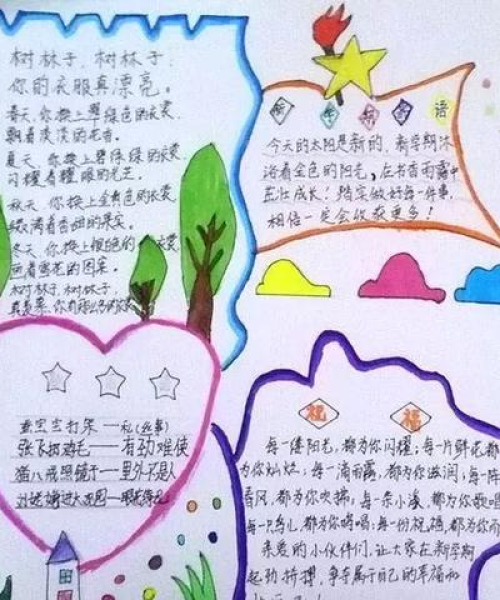 树林子,树林子,
你的衣服真漂亮。
春天,你换上翠绿色的衣裳,
飘着淡淡的花香。
夏天,你换上碧绿绿的衣裳,
闪耀着耀眼的光芒。
秋天,你换上金黄色的衣裳,
缀满着香甜的果实。
冬天,你换上银色的衣裳
画着雪花的图案。
树林子,树林子,
语
今天的太阳是新的,新学期沐
浴着金色的阳光,在书香雨露中
茁壮成长!踏实做好每一件事,
相信一定会收获更多!
张飞扔鸡毛——有劲难使
猪八戒照镜子——里外不是人
刘姥姥进大观园——眼花缭乱
祝 福
每一缕阳光,都为你闪耀;每一片鲜花,都
为你灿烂;每一滴雨露,都为你滋润;每一阵
春风,都为你吹拂;每一条小溪,都为你歌唱
每一只鸟儿,都为你啼唱;每一份祝福,都为你
亲爱的小伙伴们,让大家在新学期
起劲拼搏,争夺属于自己的幸福和